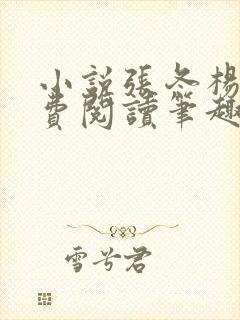 小說張冬楊
費閱讀筆趣
雪兮君